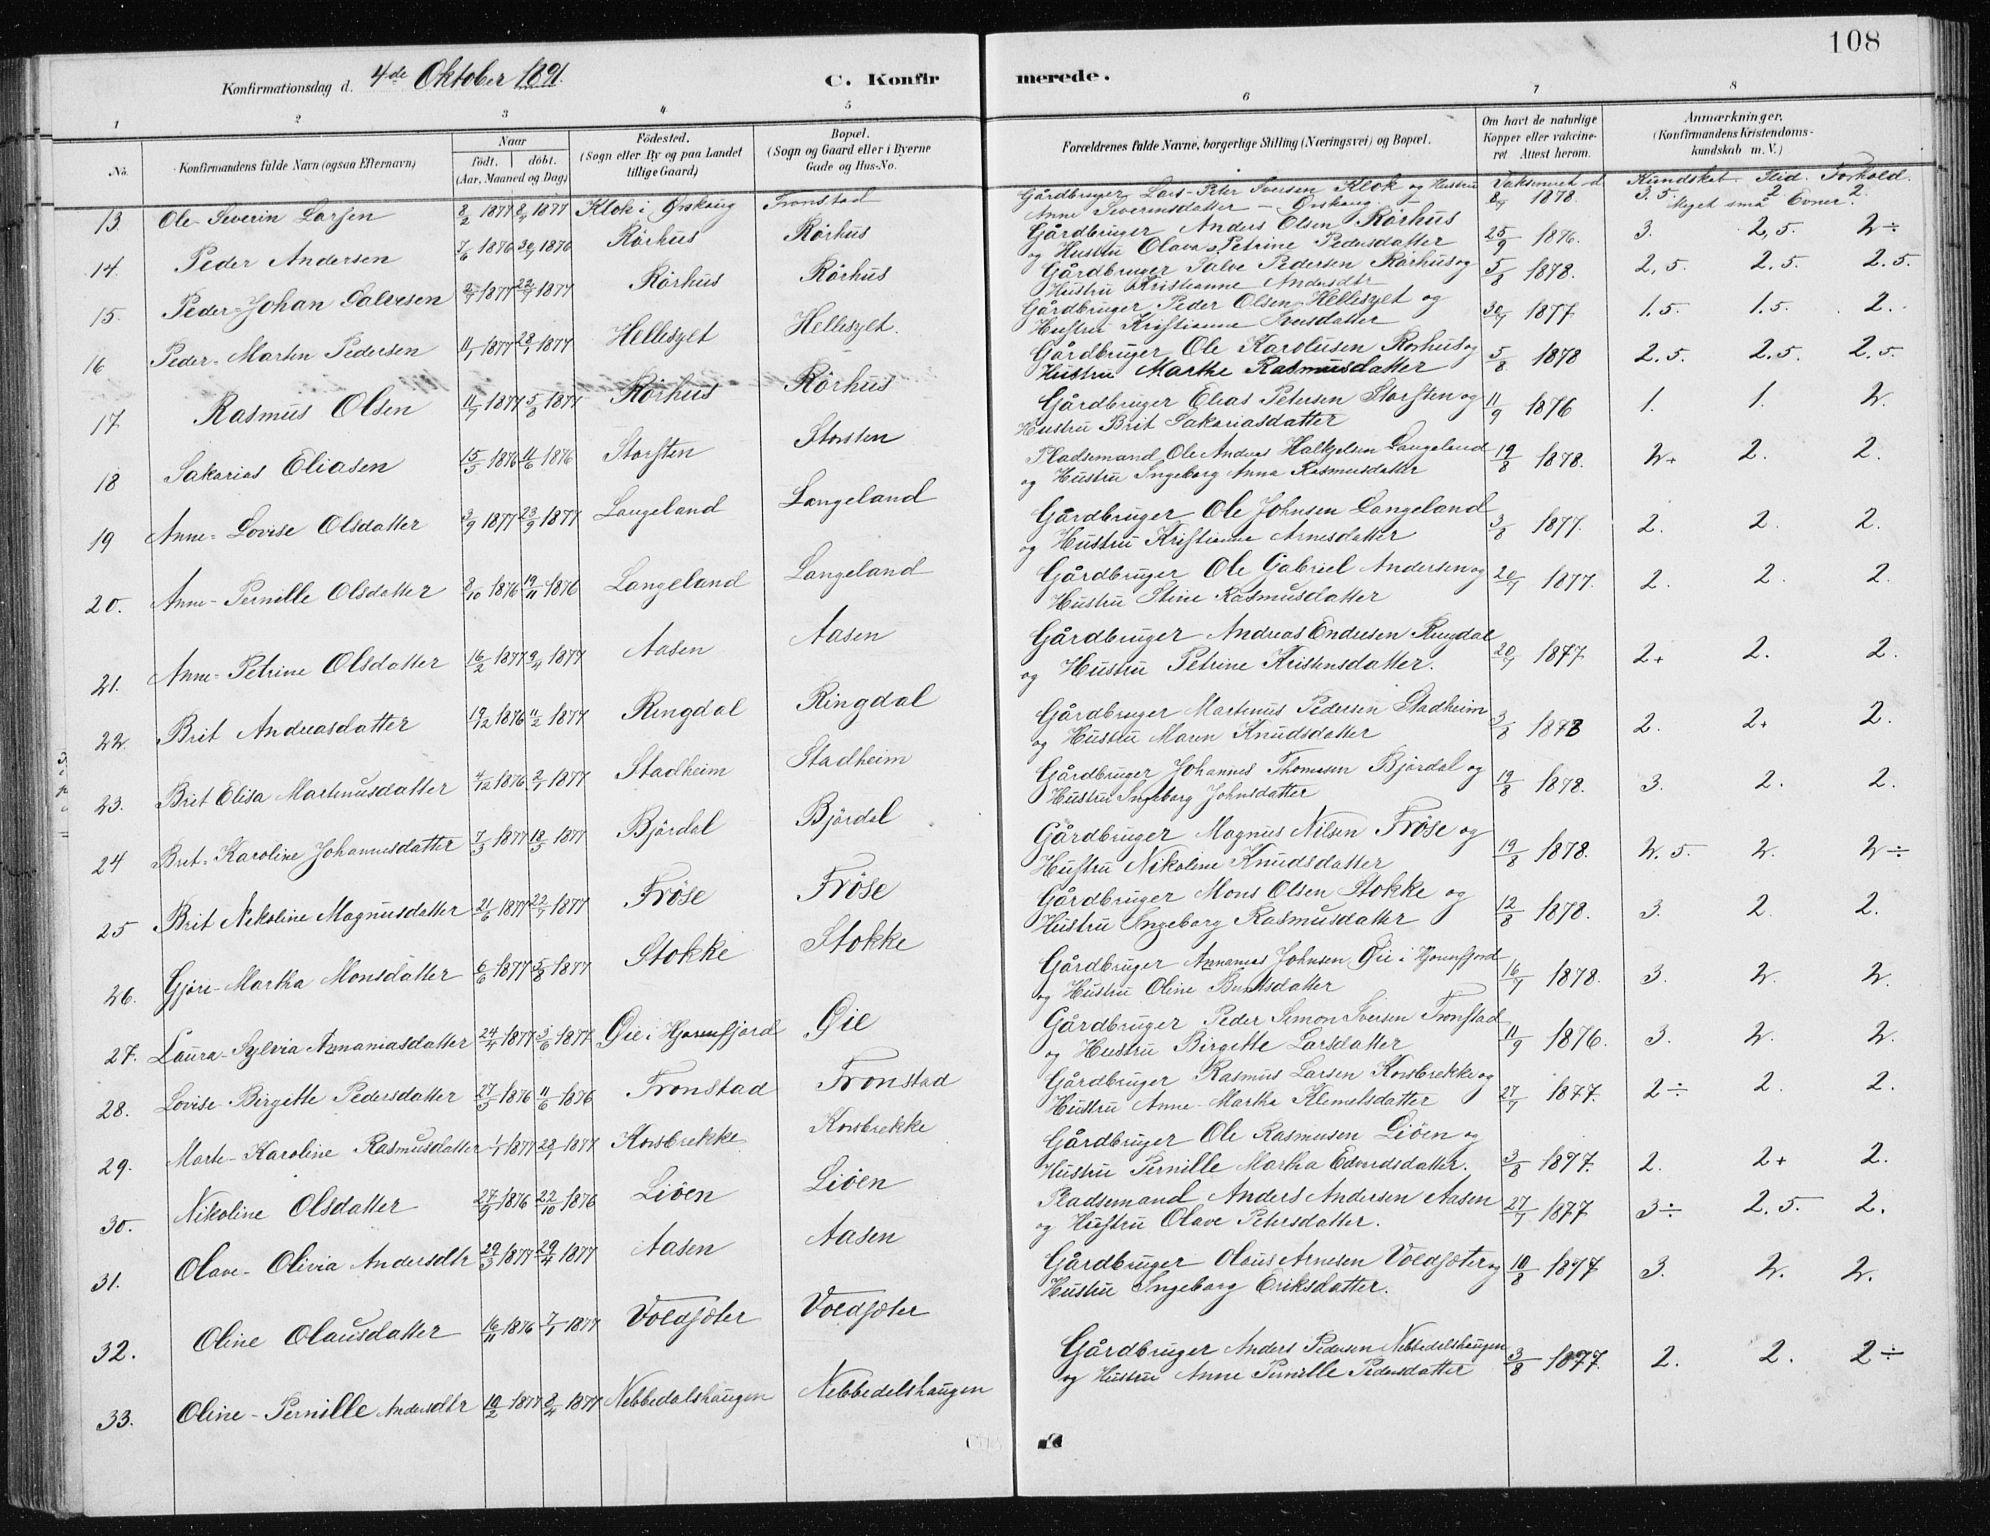 108
Konfirmationsdag d. 4de Oktober 1891.
C. Konfirmerede.
1 2 3 4 5 6 7 8
No. Konfirmandens fulde Navn (ogsaa Efternavn)
Naar født. døbt. (Aar, Maaned og Dag)
Fødested. (Sogn eller By og paa Landet tillige Gaard)
Bopæl. (Sogn og Gaard eller i Byerne Gade og Hus-No.
Forældrenes fulde Navne, borgerlige Stilling (Næringsvei) og Bopæl.
Om havt de naturlige Kopper eller vakcineret. Attest herom.
Anmærkninger, (Konfirmandens Kristendomskundskab m. V.)
Vaksineret d. Kundskab Flid. Forhold.
13. Ole-Severin Larsen 8/2 1877 8/4 1877 Klok i Ørskoug Fronstad Gårdbruger Lars-Peter Iversen Klok og Hustru Anne Severinsdatter - Ørskoug 1878. 3.5. 2 2. Meget små Evner.
14. Peder Andersen 7/6 1876 30/7 1876 Rörhus Rörhus Gårdbruger Anders Olsen Rörhus og Hustru Olava Petrine Pedersdatter 25/9 1876. 3. 2,5. 2÷
15. Peder-Johan Salvesen 1877 22/7 1877 Rörhus Rörhus Gårdbruger Salve Pedersen Rörhus og Hustru Kristianne Andersdtr 5/8 1878. 2.5. 2.5. 2.5.
16 Peder-Martin Pedersen 11/7 1877 29/7 1877 Hellesylt Hellesylt. Gårdbruger Peder Olsen Hellesylt og Hustru Kristianne Iversdatter 30/7 1877 1.5. 1.5. 2.
17. Rasmus Olsen 11/7 1877 5/8 1877 Rörhus Rörhus Gårdbruger Ole Karolusen Rörhus og Hustru Marthe Rasmusdatter 5/8 1878 2.5. 2.5. 2.5.
18 Sakarias Eliasen 15/5 1876 11/6 1876 Storsten Storsten Gårdbruger Elias Petersen Storsten og Hustru Brit Sakariasdatter 11/9 1876 1. 1. 2.
19 Anne-Lovise Olsdatter 3/9 1877 23/9 1877 Langeland Langeland Pladsemand Ole Andreas Langeland og Hustru Ingeborg Anna Rasmusdatter 19/8 1878. 2+ 2. 2.
20. Anne-Pernille Olsdatter 8/10 1876 19/11 1876 Langeland Langeland Gårdbruger Ole Johnsen Langeland og Hustru Kristianne Arnesdatter 3/8 1877. 2. 2. 2.
21. Anne-Petrine Olsdatter 16/2 1877 2/4 1877 Aasen Aasen Gårdbruger Ole Gabriel Andersen og Hustru Stine Rasmusdatter 20/7 1877. 2. 2. 2.
22. Brit Andreasdatter 19/12 1876 11/2 1877 Ringdal Ringdal Gårdbruger Andreas Endresen Ringdal og Hustru Petrine Kristensdatter. 20/7 1877 2+ 2. 2.
23. Brit Elisa Martinusdatter 7/12 1876 2/4 1877 Stadheim Stadheim Gårdbruger Martinus Pedersen Stadheim og Hustru Maren Knudsdatter 3/8 1878 2. 2+ 2.
24 Brit-Karoline Johannesdatter 7/3 1877 18/3 1877 Björdal Björdal Gårdbruger Johannes Thomasen Björdal og Hustru Ingeborg Johnsdatter 19/8 1878. 3. 2. 2.
25 Brit Nikoline Magnusdatter 21/6 1877 22/7 1877 Fröse Fröse Gårdbruger Magnus Nilsen Fröse og Hustru Nikoline Knudsdatter 19/8 1878. 2.5. 2. 2÷
26. Gjøre-Martha Monsdatter 6/6 1877 5/8 1877 Stokke Stokke Gårdbruger Mons Olsen Stokke og Hustru Ingeborg Rasmusdatter 12/8 1878. 3. 2. 2.
27. Laura-Sylvia Annaniasdatter 24/4 1877 3/6 1877 Øie i Hjørnfjord Øie Gårdbruger Annanias Johnsen Øie i Hjørnfjord og Hustru Oline 16/7 1878. 3. 2. 2.
28. Lovise Birgette Pedersdatter 27/3 1876 11/6 1876 Fronstad Fronstad Gårdbruger Peder Simon Iversen Fronstad og Hustru Birgette Larsdatter 11/9 1876. 3. 2. 2.
29. Marte-Karoline Rasmusdatter 1/1 1877 1877 Korsbrekke Korsbrekke Gårdbruger Rasmus Larsen Korsbrekke og Hustru Anne-Martha Klemetsdatter 27/7 1877. 2÷ 2. 2.
30. Nikoline Olsdatter 27/9 1876 22/10 1876 Liöen Liöen Gårdbruger Ole Rasmusen Liöen og Hustru Pernille Martha Edvardsdatter. 3/8 1877. 2. 2+ 2.
31. Olave-Olivia Andersdtr 29/3 1877 29/4 1877 Aasen Aasen Pladsemand Anders Andersen Aasen og Hustru Olave Petersdatter. 27/7 1877 3÷ 2.5. 2.
32. Oline Olausdatter 16/11 1876 7/1 1877 Voldsæter Voldsæter Gårdbruger Olaus Arnesen Voldsæter og Hustru Ingeborg Eriksdatter. 10/8 1877 3. 2. 2.
33. Oline-Pernille Andersdtr 10/2 1877 8/4 1877 Nebbedalshaugen Nebbedelshaugen Gårdbruger Anders Pedersen Nebbedelshaugen og Hustru Anne Pernille Pedersdatter 3/8 1877. 2. 2. 2÷